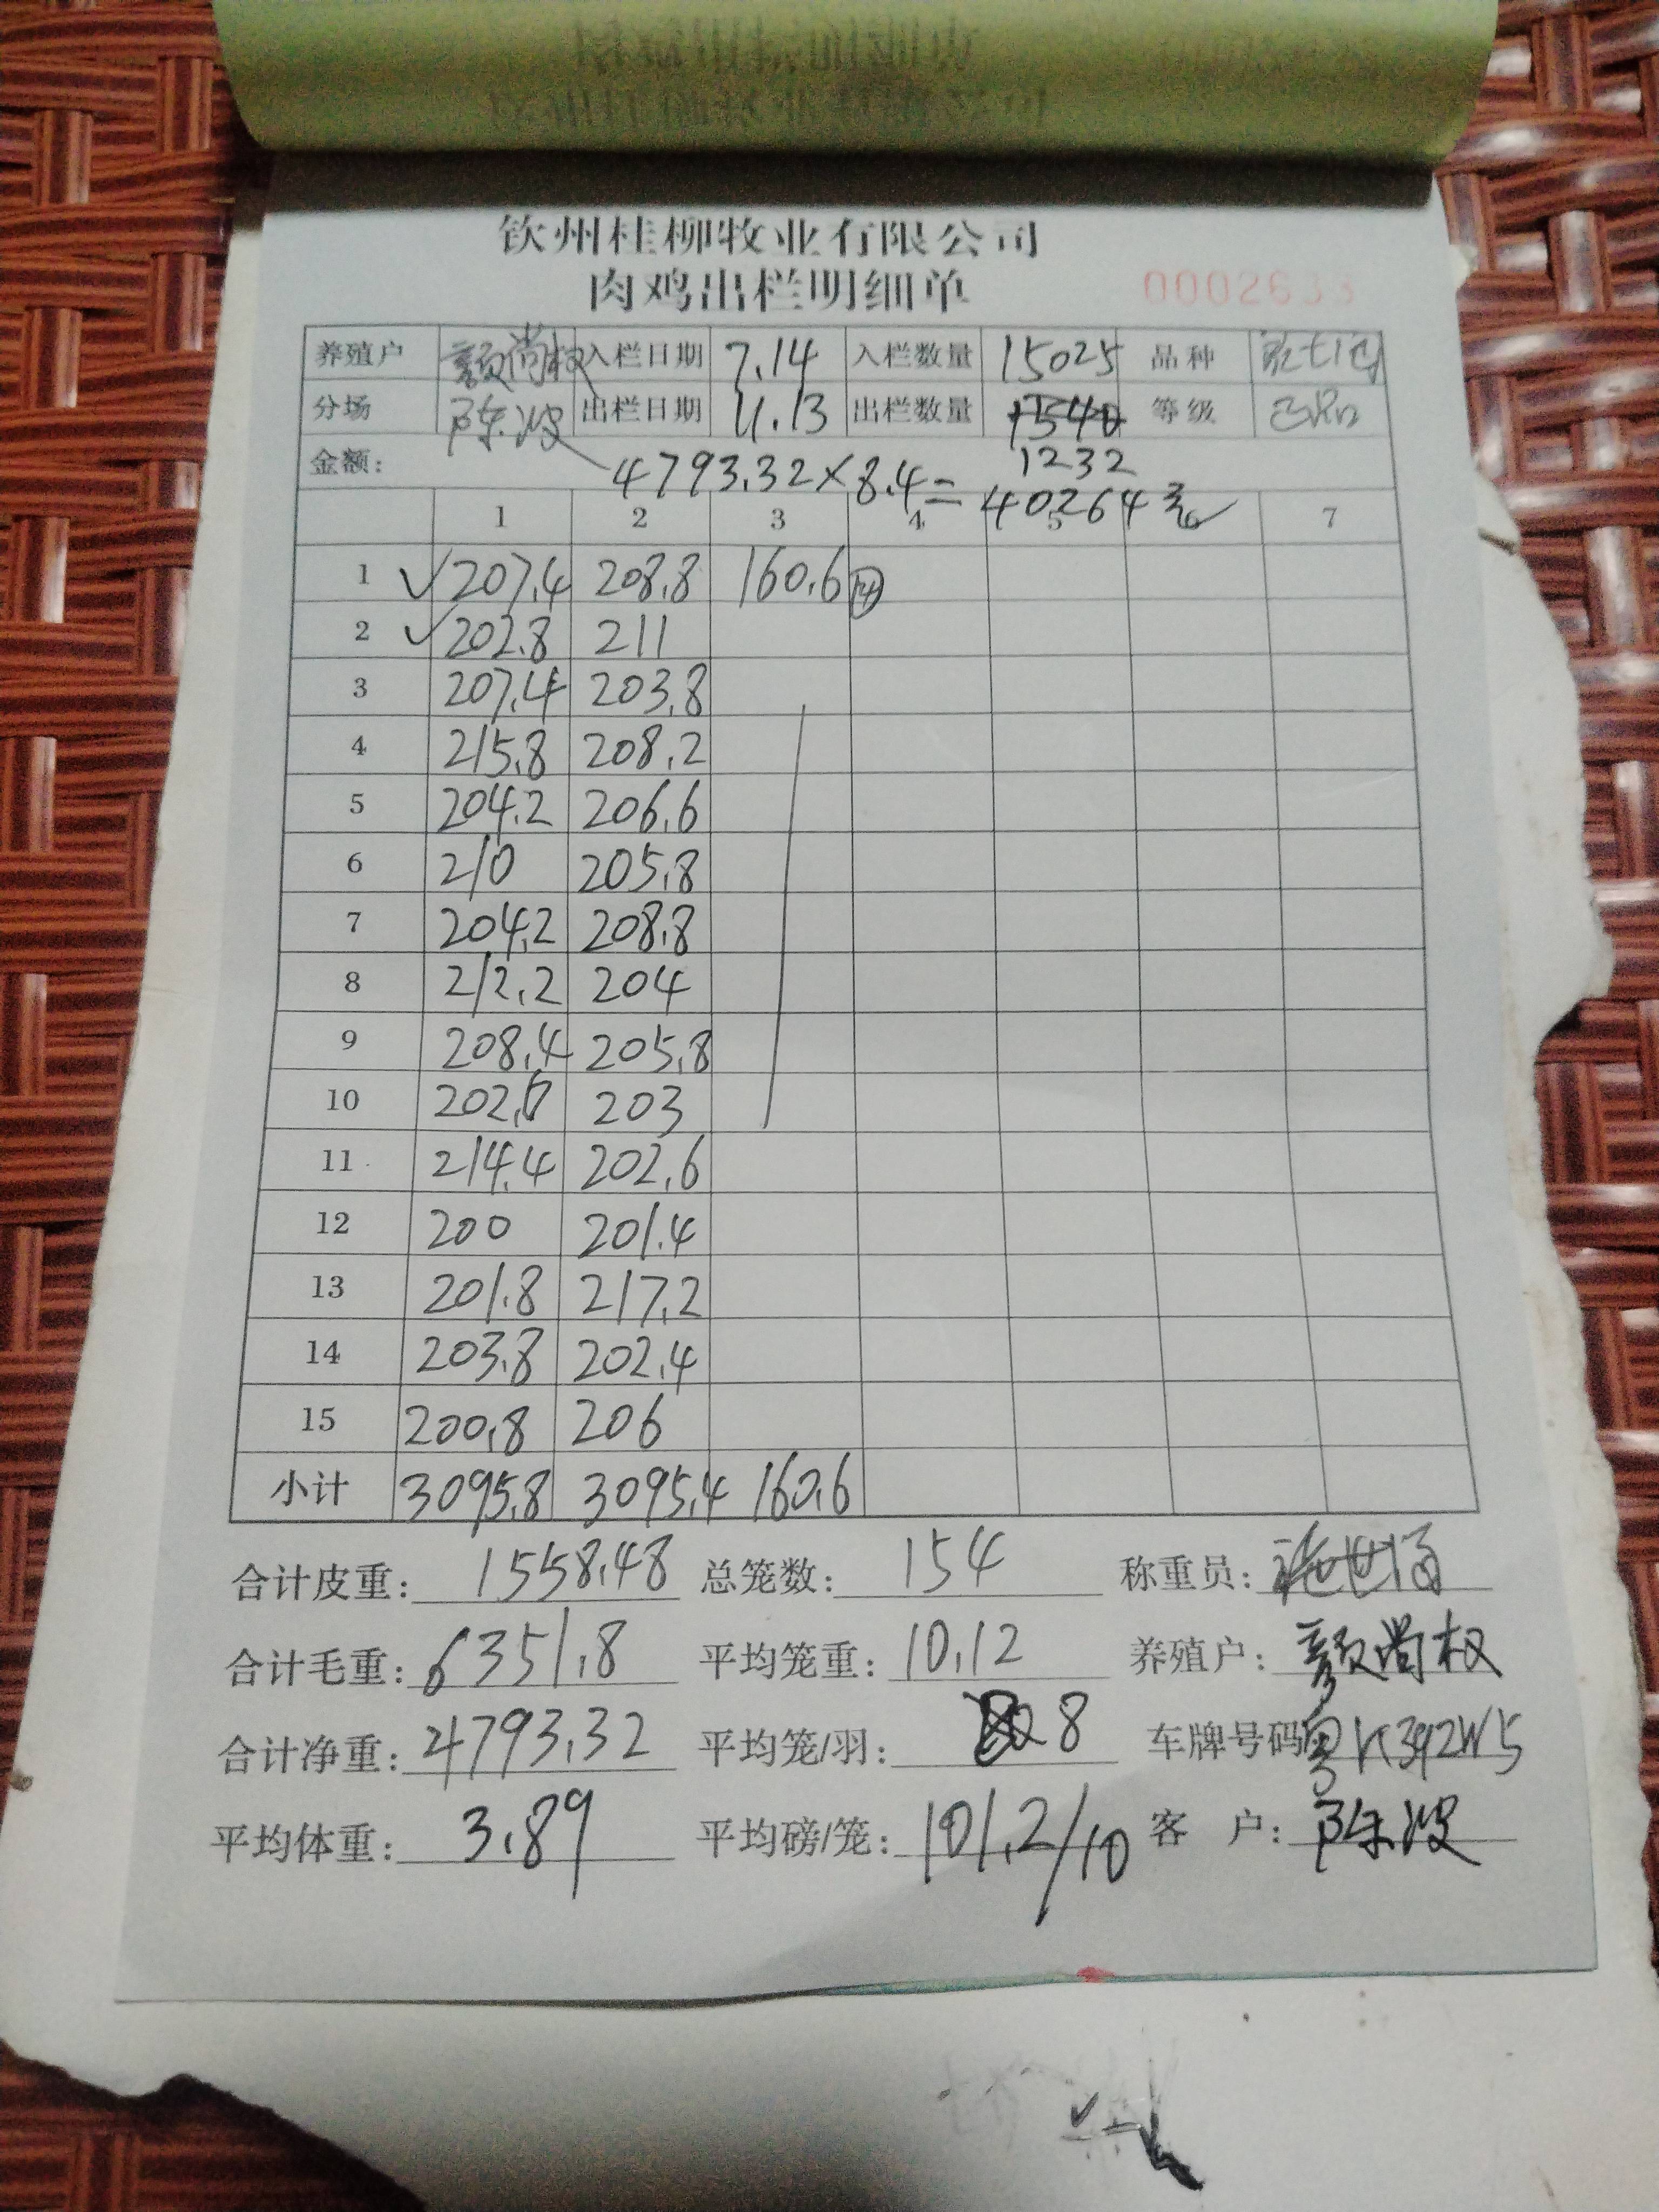 钦州桂柳牧业有限公司
肉鸡出栏明细单 0002633
养殖户 颜尚权 入栏日期 7.14 入栏数量 15025 品种
分场 陈波 出栏日期 11.13 出栏数量 1540 等级
1232
金额: 4793.32×8.4=40264元
1 2 3 4 5 6 7
1 ✓ 207.4 208.8 160.6 ④
2 ✓ 202.8 211
3 207.4 203.8
4 215.8 208.2
5 204.2 206.6
6 210 205.8
7 204.2 208.8
8 212.2 204
9 208.4 205.8
10 202.6 203
11 214.4 202.6
12 200 201.4
13 201.8 217.2
14 203.8 202.4
15 200.8 206
小计 3095.8 3095.4 160.6
合计皮重: 1558.48 总笼数: 154 称重员:
合计毛重: 6351.8 平均笼重: 10.12 养殖户: 颜尚权
合计净重: 4793.32 平均笼/羽: 8 车牌号码 粤K392W5
平均体重: 3.89 平均磅/笼: 101.2/10 客户: 陈波